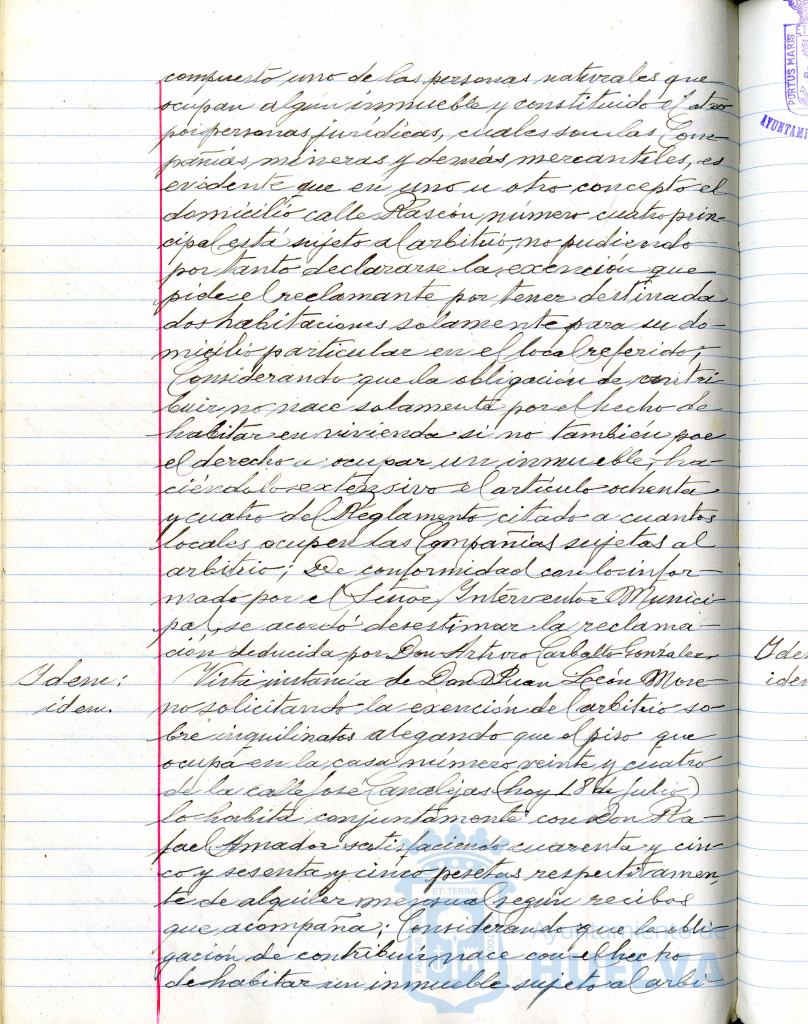 compuesto uno de las personas naturales que
ocupan algún inmueble y constituido el otro
por personas jurídicas, cuales son las Com-
pañías mineras y demás mercantiles, es
evidente que en uno u otro concepto el
domicilio calle Rascón, número cuatro prin-
cipal está sujeto al arbitrio, no pudiendo
por tanto declararse la exención que
pide el reclamante por tener destinada
dos habitaciones solamente para su do-
micilio particular en el local referido;
Considerando que la obligación de contri
buir, no nace solamente por el hecho de
habitar en vivienda si no también por
el derecho a ocupar un inmueble, ha-
ciéndolo extensivo el artículo ochenta
y cuatro del Reglamento citado a cuantos
locales ocupen las Compañías sujetas al
arbitrio; De conformidad con lo infor-
mado por el Señor Interventor Munici-
pal, se acordó desestimar la reclama-
ción deducida por Don Arturo Carballo Gonzalez.
Idem:
idem.
Vista instancia de Don Juan Locón More-
no solicitando la exencion del arbitrio so-
bre inquilinatos alegando que el piso que
ocupa en la casa número veinte y cuatro
de la calle José Canalejas (hoy 18 de Julio)
lo habita conjuntamente con Don Ra-
fael Amador satisfaciendo cuarenta y cin-
co y sesenta y cinco pesetas respectivamen-
te de alquiler mensual según recibos
que acompaña; Considerando que la obli-
gación de contribuir nace con el hecho
de habitar un inmueble sujeto al arbi-
Idem
iden
PORTUS MARIS
AYUNTAMI
ET TERRÆ
Ayuntamiento de
HUELVA